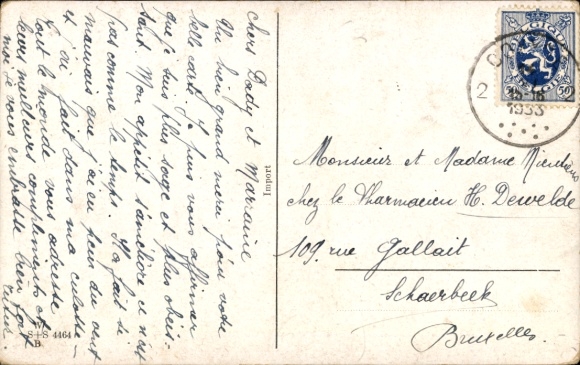 Chers Dady et Mariaine
Un bien grand merci pour votre
belle carte. Je puis vous affirmer
que je suis plus sage et plus obéis-
sant. Mon appétit s'améliore ce n'est
pas comme le temps. Il a fait si
mauvais que j'ai eu peur du vent
et j'ai fait dans ma culotte
tout le monde vous adresse
leurs meilleurs compliments et
moi je vous embrasse bien fort
W.
S+S 4464
B
Import
BELGIQUE
BELGIË
50
2
1933
Monsieur et Madame
chez le Pharmacien H. Dewelde
109, rue Gallait
Schaerbeek
Bruxelles.